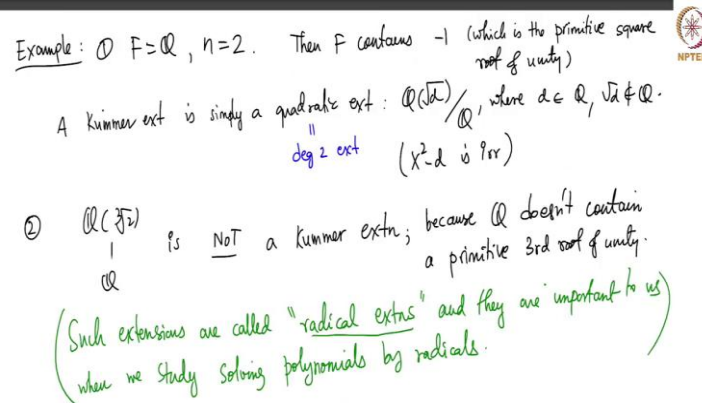 Example: ① F=ℚ, n=2. Then F contains -1 (which is the primitive square
root of unity)
NPTEL
A Kummer ext is simply a quadratic ext: ℚ(√d)/ℚ, where d∈ℚ, √d∉ℚ.
||
deg 2 ext (X²-d is irr)
② ℚ(∛2)
| is NOT a Kummer extn; because ℚ doesn't contain
ℚ a primitive 3rd root of unity.
(Such extensions are called "radical extns" and they are important to us
when we study solving polynomials by radicals.)